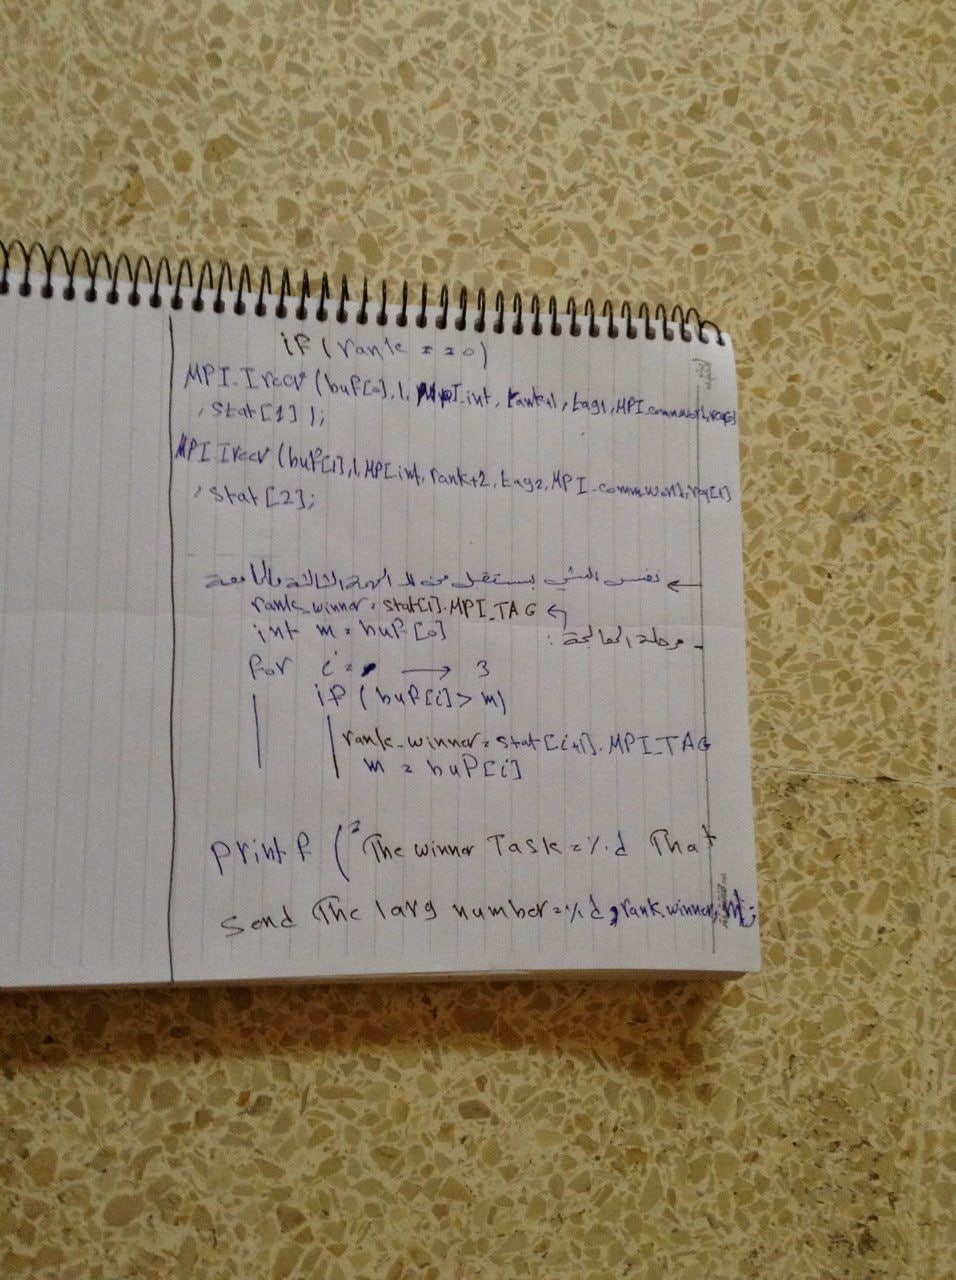 if (rank == 0)
MPI_Irecv (buf[0], 1, MPI_int, rank+1, tag1, MPI_comm.world, req[0]
, stat[1] );
MPI_Irecv (buf[1], 1, MPI_int, rank+2, tag2, MPI_comm.world, req[1]
, stat[2];
← نفس الشي يستقبل من المهمة الثالثة والرابعة
rank_winner = stat[1].MPI_TAG
- مرحلة المعالجة :
int m = buf[0]
for i = → 3
if (buf[i] > m)
rank_winner = stat[i+1].MPI_TAG
m = buf[i]
printf ("The winner Task = %d That
send The larg number = %d , rank_winner, m);